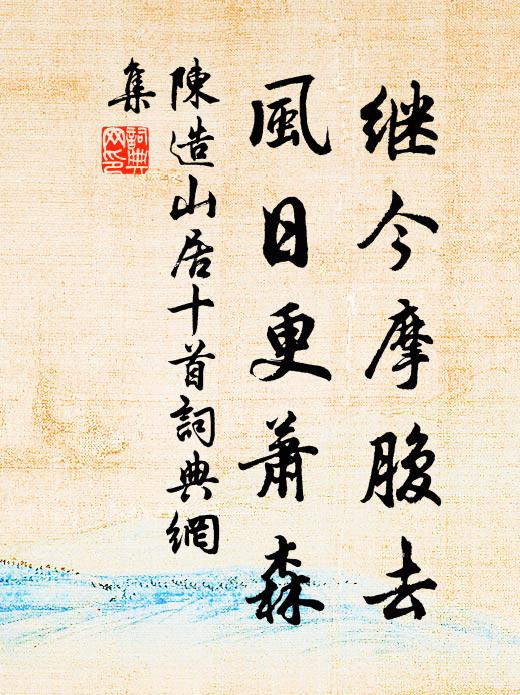 继今摩腹去
風日更蕭森
陳造山居十首詞典網
集
詞典網印